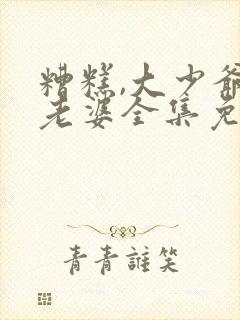 糟糕,大少爷
老婆全集免
青青誰笑